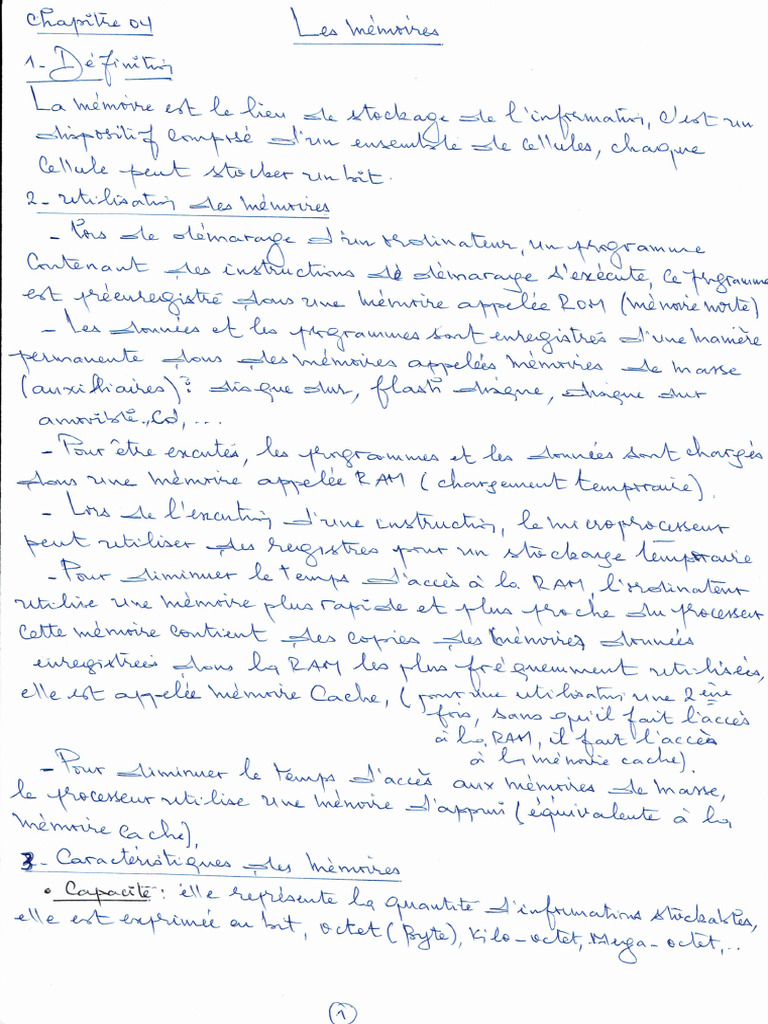 Chapitre 04
Les mémoires
1- Définition
La mémoire est le lieu de stockage de l'information, c'est un
dispositif composé d'un ensemble de cellules, chaque
cellule peut stocker un bit.
2- utilisation des mémoires
- Lors de démarage d'un ordinateur, un programme
contenant des instructions de démarage s'exécute, ce programme
est préenregistré dans une mémoire appelée ROM (mémoire morte)
- Les données et les programmes sont enregistrés d'une manière
permanente dans des mémoires appelées mémoires de masse
(auxilliaires) : disque dur, flash disque, disque dur
amovible, Cd, ...
- Pour être excutés, les programmes et les données sont chargés
dans une mémoire appelée RAM (chargement temporaire).
- Lors de l'excution d'une instruction, le microprocesseur
peut utiliser des registres pour un stockage temporaire
- Pour diminuer le temps d'accès à la RAM, l'ordinateur
utilise une mémoire plus rapide et plus proche du processeur
cette mémoire contient des copies des (mémoires) données
enregistrées dans la RAM les plus fréquemment utilisées,
elle est appelée mémoire Cache, (pour une utilisation une 2ème
fois, sans qu'il fait l'accès
à la RAM, il fait l'accès
à la mémoire cache).
- Pour diminuer le temps d'accès aux mémoires de masse,
le processeur utilise une mémoire d'appui (équivalente à la
mémoire cache),
3- Caractéristiques des mémoires
• Capacité : elle représente la quantité d'informations stockables,
elle est exprimée en bit, octet (Byte), Kilo-octet, Mega-octet,..
1